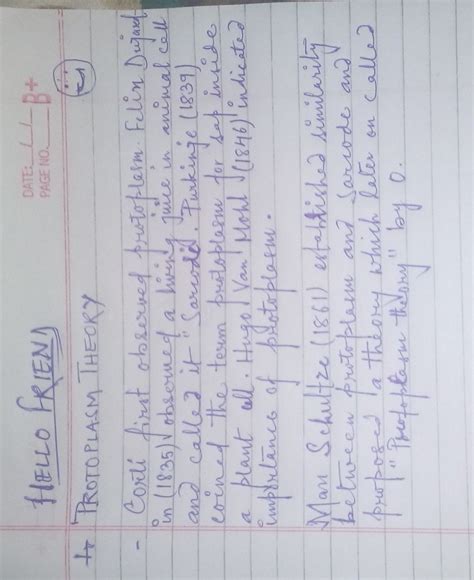 DATE: / /
PAGE NO. B+
HELLO FRIEND
PROTOPLASM THEORY
- Corti first observed protoplasm. Felix Dujard
in (1835) observed a living juice in animal cell
and called it "Sarcode". Purkinge (1839)
coined the term protoplasm for sap inside
a plant cell. Hugo Van Mohl (1846) indicated
importance of protoplasm.
Max Schultze (1861) established similarity
between protoplasm and Sarcode and
proposed a theory which later on called
"Protoplasm theory" by O.